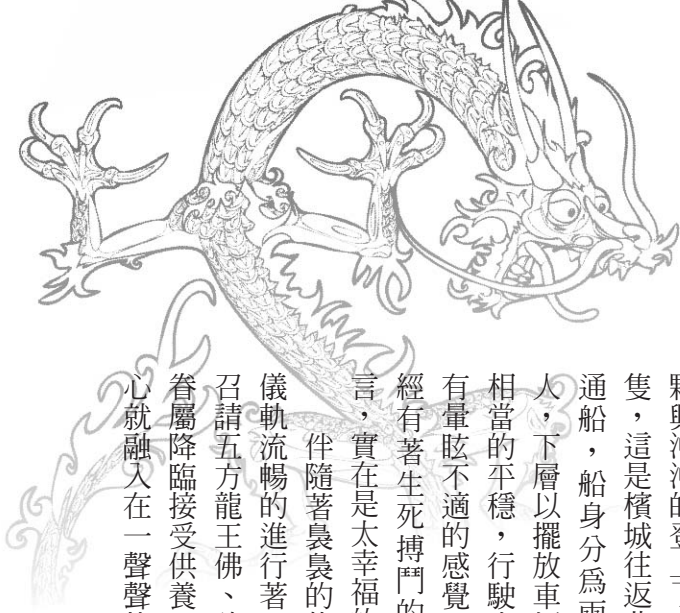 夥興沖沖的登
隻，這是檳城往返
通船，船身分爲兩
人，下層以擺放車
相當的平穩，行駛
有暈眩不適的感覺
經有著生死搏鬥的
言，實在是太幸福的
伴隨著裊裊的
儀軌流暢的進行著
召請五方龍王佛、
眷屬降臨接受供養
心就融入在一聲聲